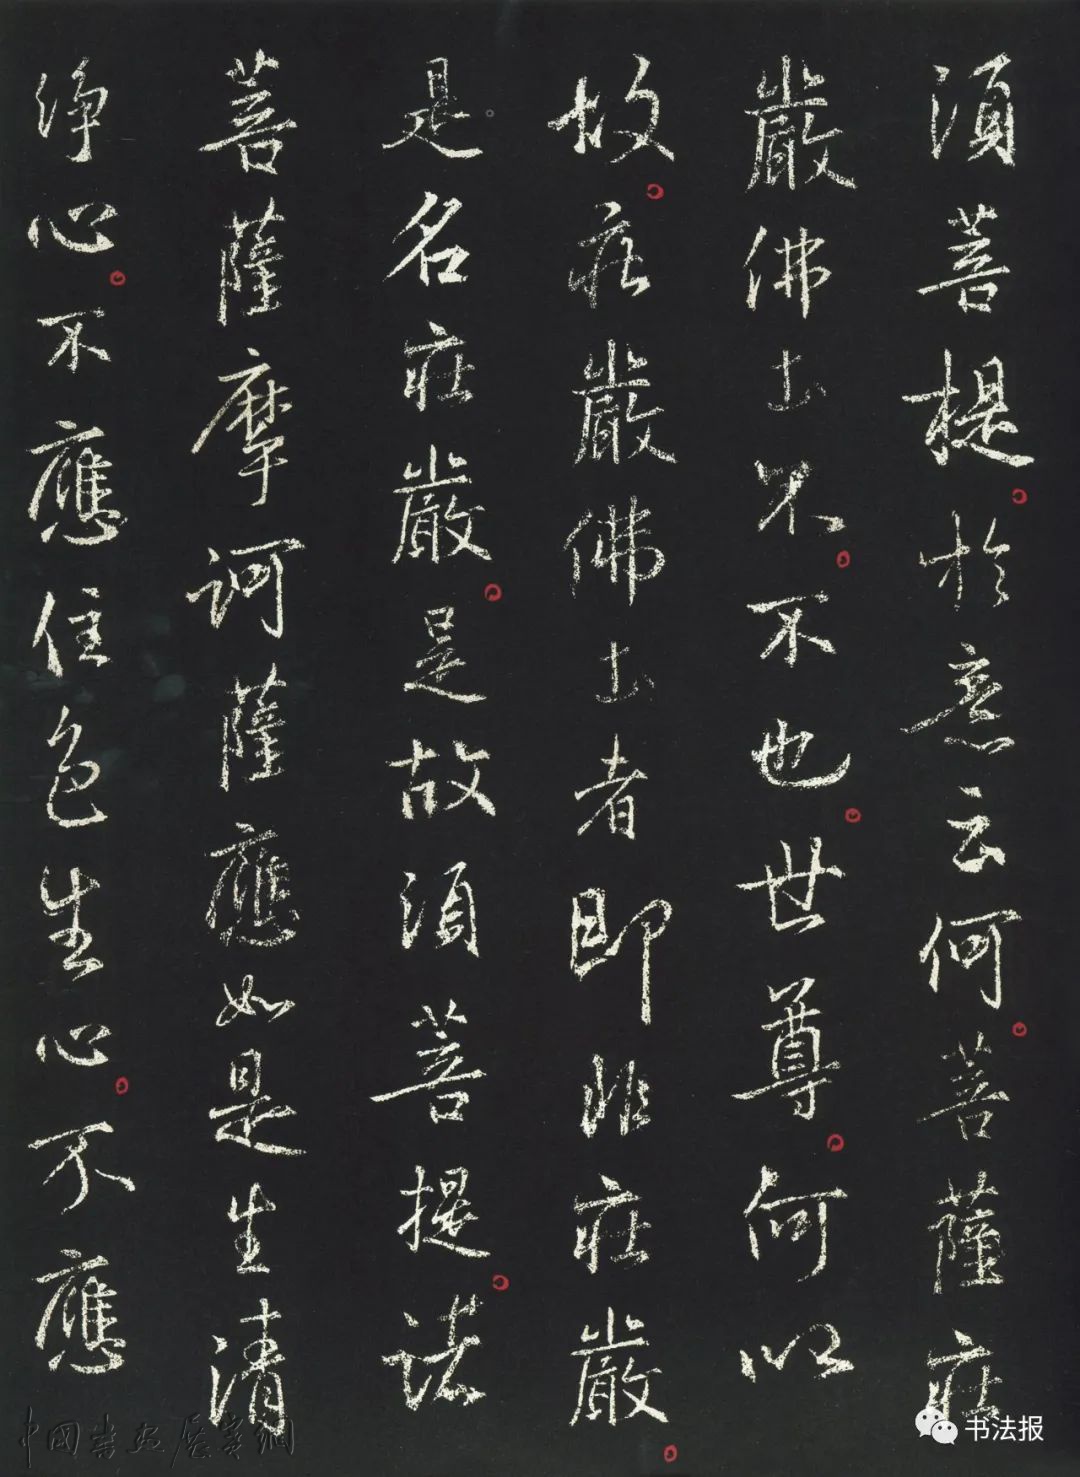 須菩提。於意云何。菩薩莊
嚴佛土不。不也。世尊。何以
故。莊嚴佛土者即非莊嚴。
是名莊嚴。是故須菩提。諸
菩薩摩訶薩應如是生清
淨心。不應住色生心。不應
中國書畫展賽網
书法报